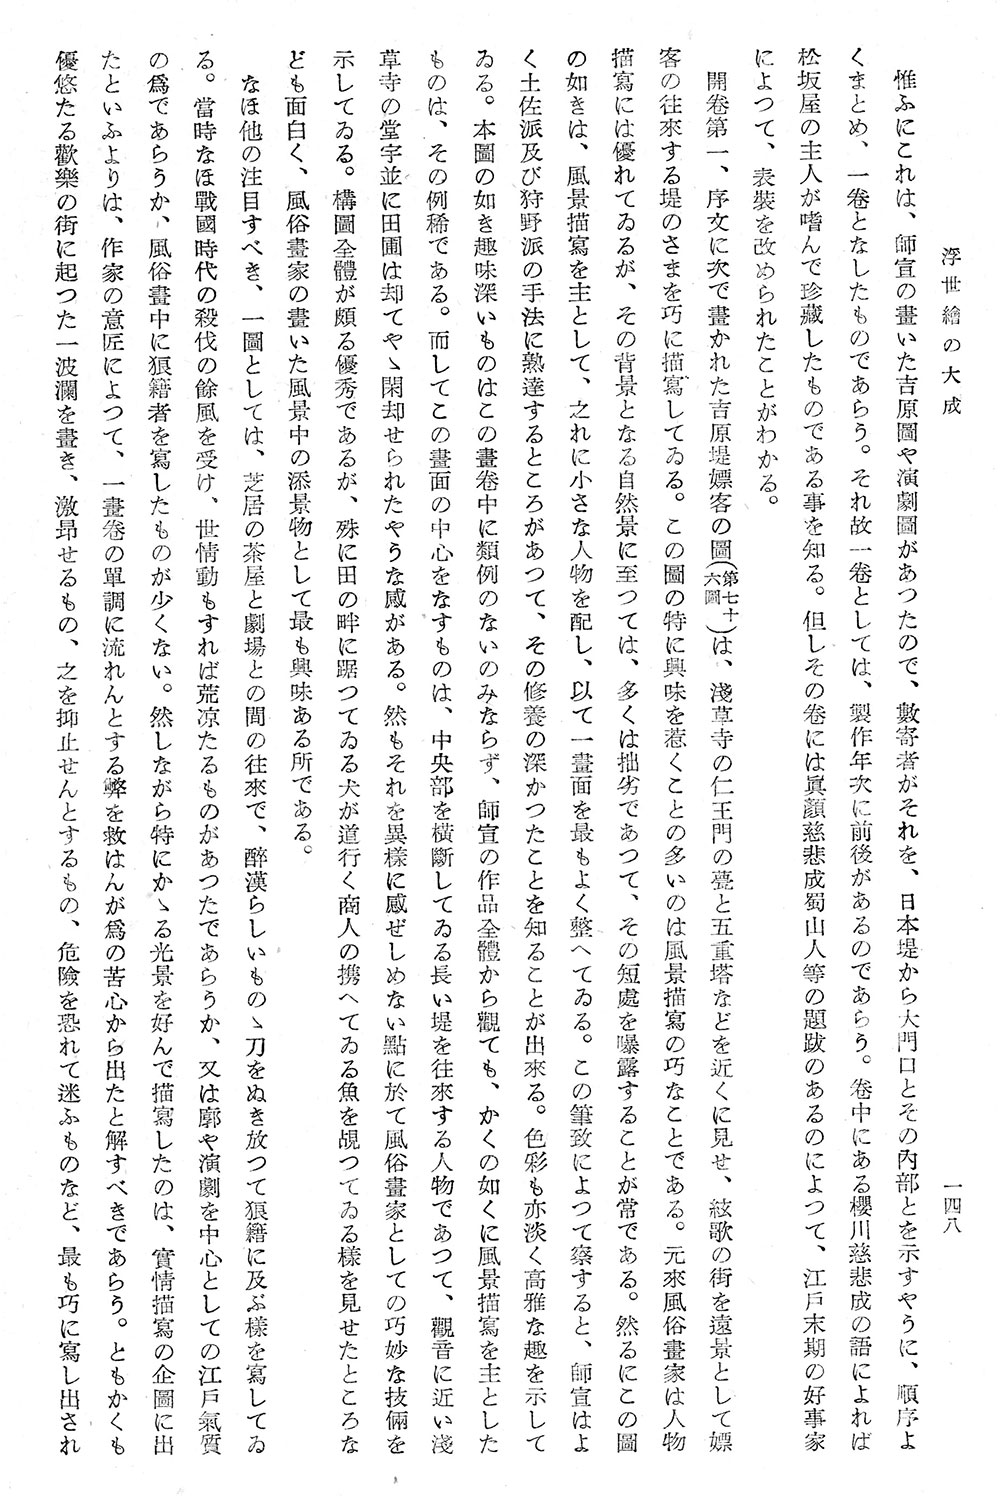 浮世繪の大成
一四八
惟ふにこれは、師宣の畫いた吉原圖や演劇圖があつたので、數寄者がそれを、日本堤から大門口とその內部とを示すやうに、順序よ
くまとめ、一卷となしたものであらう。それ故一卷としては、製作年次に前後があるのであらう。卷中にある櫻川慈悲成の語によれば
松坂屋の主人が嗜んで珍藏したものである事を知る。但しその卷には眞顏慈悲成蜀山人等の題跋のあるのによつて、江戶末期の好事家
によつて、表裝を改められたことがわかる。
開卷第一、序文に次で畫かれた吉原堤嫖客の圖(第七十六圖)は、淺草寺の仁王門の甍と五重塔などを近くに見せ、絃歌の街を遠景として嫖
客の往來する堤のさまを巧に描寫してゐる。この圖の特に興味を惹くことの多いのは風景描寫の巧なことである。元來風俗畫家は人物
描寫には優れてゐるが、その背景となる自然景に至つては、多くは拙劣であつて、その短處を曝露することが常である。然るにこの圖
の如きは、風景描寫を主として、之れに小さな人物を配し、以て一畫面を最もよく整へてゐる。この筆致によつて察すると、師宣はよ
く土佐派及び狩野派の手法に熟達するところがあつて、その修養の深かつたことを知ることが出來る。色彩も亦淡く高雅な趣を示して
ゐる。本圖の如き趣味深いものはこの畫卷中に類例のないのみならず、師宣の作品全體から觀ても、かくの如くに風景描寫を主とした
ものは、その例稀である。而してこの畫面の中心をなすものは、中央部を橫斷してゐる長い堤を往來する人物であつて、觀音に近い淺
草寺の堂宇並に田圃は却てやゝ閑却せられたやうな感がある。然もそれを異樣に感ぜしめない點に於て風俗畫家としての巧妙な技倆を
示してゐる。構圖全體が頗る優秀であるが、殊に田の畔に踞つてゐる犬が道行く商人の携へてゐる魚を覘つてゐる樣を見せたところな
ども面白く、風俗畫家の畫いた風景中の添景物として最も興味ある所である。
なほ他の注目すべき、一圖としては、芝居の茶屋と劇場との間の往來で、醉漢らしいものゝ刀をぬき放つて狼籍に及ぶ樣を寫してゐ
る。當時なほ戰國時代の殺伐の餘風を受け、世情動もすれば荒凉たるものがあつたであらうか、又は廓や演劇を中心としての江戶氣質
の爲であらうか、風俗畫中に狼籍者を寫したものが少くない。然しながら特にかゝる光景を好んで描寫したのは、實情描寫の企圖に出
たといふよりは、作家の意匠によつて、一畫卷の單調に流れんとする弊を救はんが爲の苦心から出たと解すべきであらう。ともかくも
優悠たる歡樂の街に起つた一波瀾を畫き、激昻せるもの、之を抑止せんとするもの、危險を恐れて迷ふものなど、最も巧に寫し出され